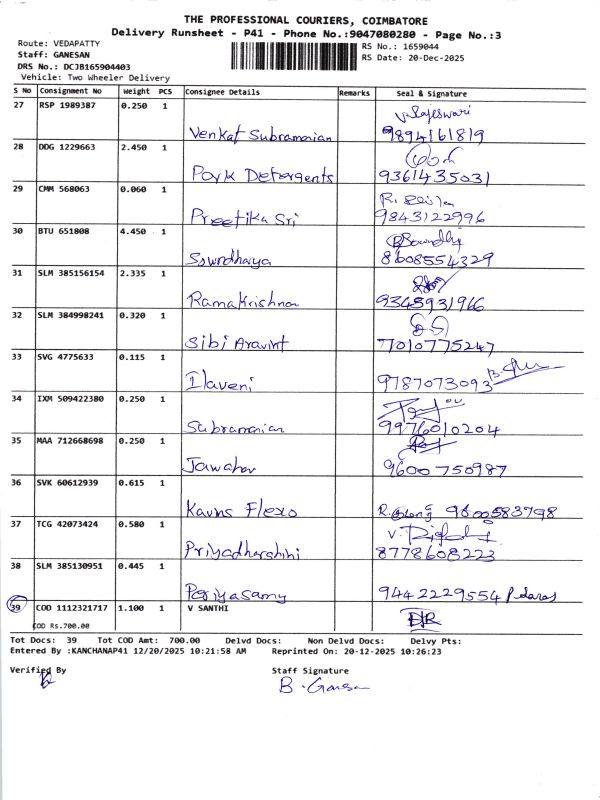 THE PROFESSIONAL COURIERS, COIMBATORE
Delivery Runsheet - P41 - Phone No.:9047080280 - Page No.:3
Route: VEDAPATTY
Staff: GANESAN
DRS No.: DCJB165904403
Vehicle: Two Wheeler Delivery
RS No.: 1659044
RS Date: 20-Dec-2025
S No Consignment No Weight PCS Consignee Details Remarks Seal & Signature
27 RSP 1989387 0.250 1
Venkat Subramanian 9894161819
28 DDG 1229663 2.450 1
Park Detergents 9361435031
29 CMM 568063 0.060 1
Preetika Sri 9843122996
30 BTU 651808 4.450 1
Sowrdhaya 8608554329
31 SLM 385156154 2.335 1
RamaKrishnan 9345931966
32 SLM 384998241 0.320 1
Sibi Aravint 77010775247
33 SVG 4775633 0.115 1
Ilaveni 9787073093
34 IXM 509422380 0.250 1
Subramanian 9976010204
35 MAA 712668698 0.250 1
Jawahar 9600750987
36 SVK 60612939 0.615 1
Kavns Flexo 9600583798
37 TCG 42073424 0.580 1
Priyadharshini 8778608223
38 SLM 385130951 0.445 1
Periyasamy 9442229554
39 COD 1112321717 1.100 1 V SANTHI
COD Rs.700.00
Tot Docs: 39 Tot COD Amt: 700.00 Delvd Docs: Non Delvd Docs: Delvy Pts:
Entered By :KANCHANAP41 12/20/2025 10:21:58 AM Reprinted On: 20-12-2025 10:26:23
Verified By Staff Signature
B. Ganesan